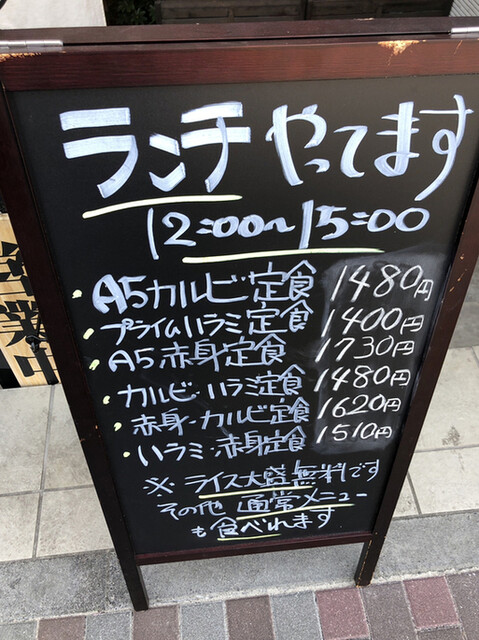 ランチ やってます
12:00〜15:00
・A5カルビ定食 1480円
・プライムハラミ定食 1400円
・A5赤身定食 1730円
・カルビ・ハラミ定食 1480円
・赤身・カルビ定食 1620円
・ハラミ・赤身定食 1510円
※ ライス大盛無料です
その他 通常メニュー
も食べれます
営業中